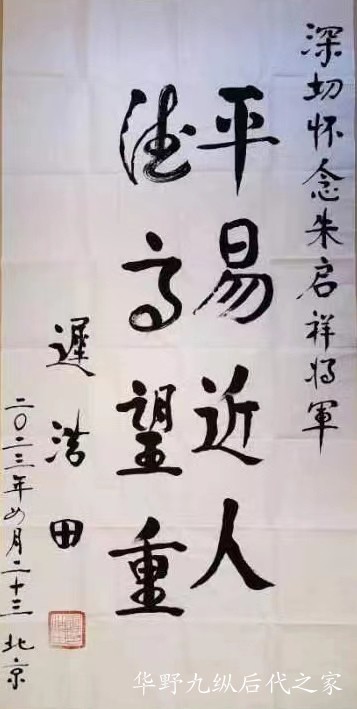 深切怀念朱启祥将軍
平易近人
德高望重
遲浩田
二〇二三年四月二十三北京
华野九纵后代之家